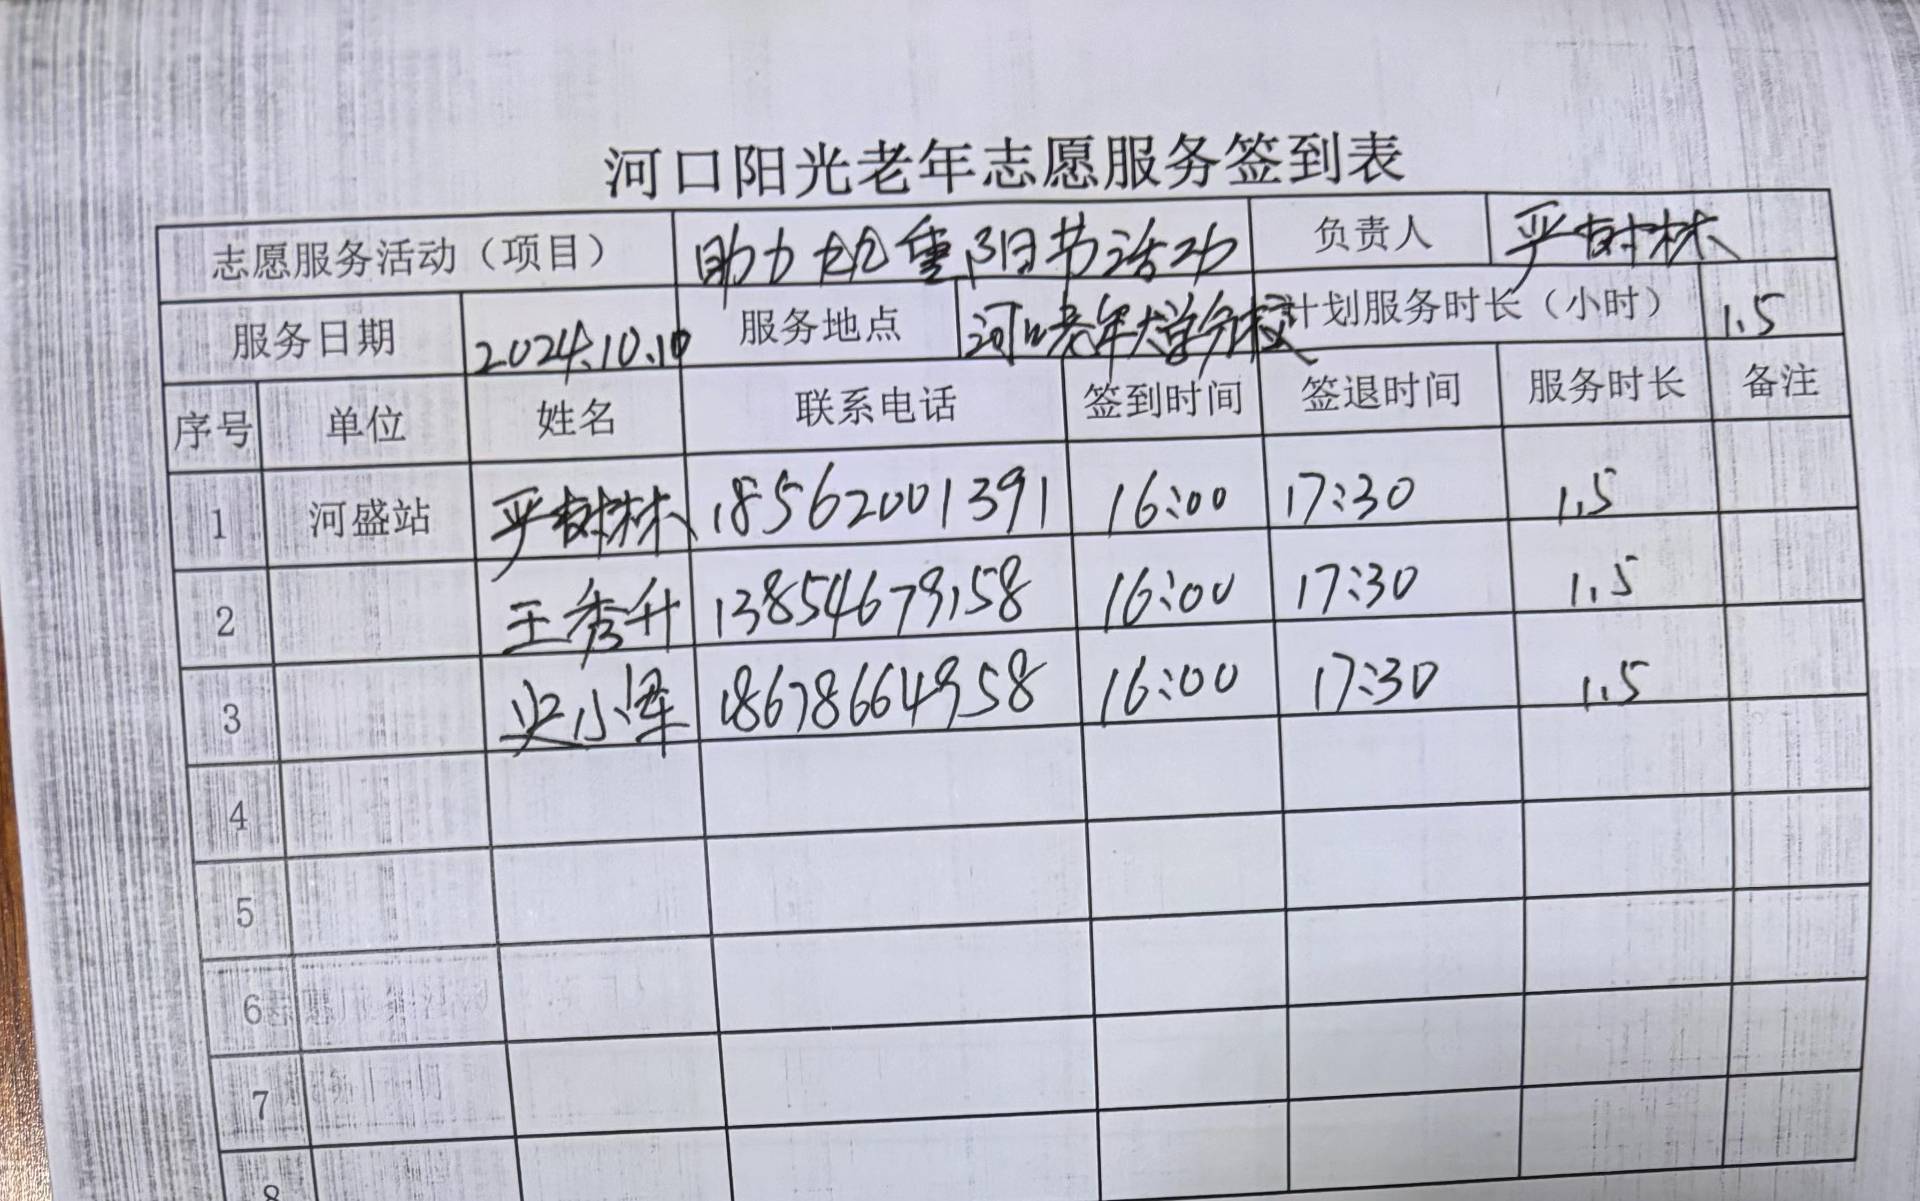 河口阳光老年志愿服务签到表
志愿服务活动（项目） 助力 重阳节活动 负责人 严树林
服务日期 2024.10.10 服务地点 河口老年大学分校 计划服务时长（小时） 1.5
序号 单位 姓名 联系电话 签到时间 签退时间 服务时长 备注
1 河盛站 严树林 18562001391 16:00 17:30 1.5
2 王秀升 13854679158 16:00 17:30 1.5
3 小军 18678664958 16:00 17:30 1.5
4
5
6
7
8